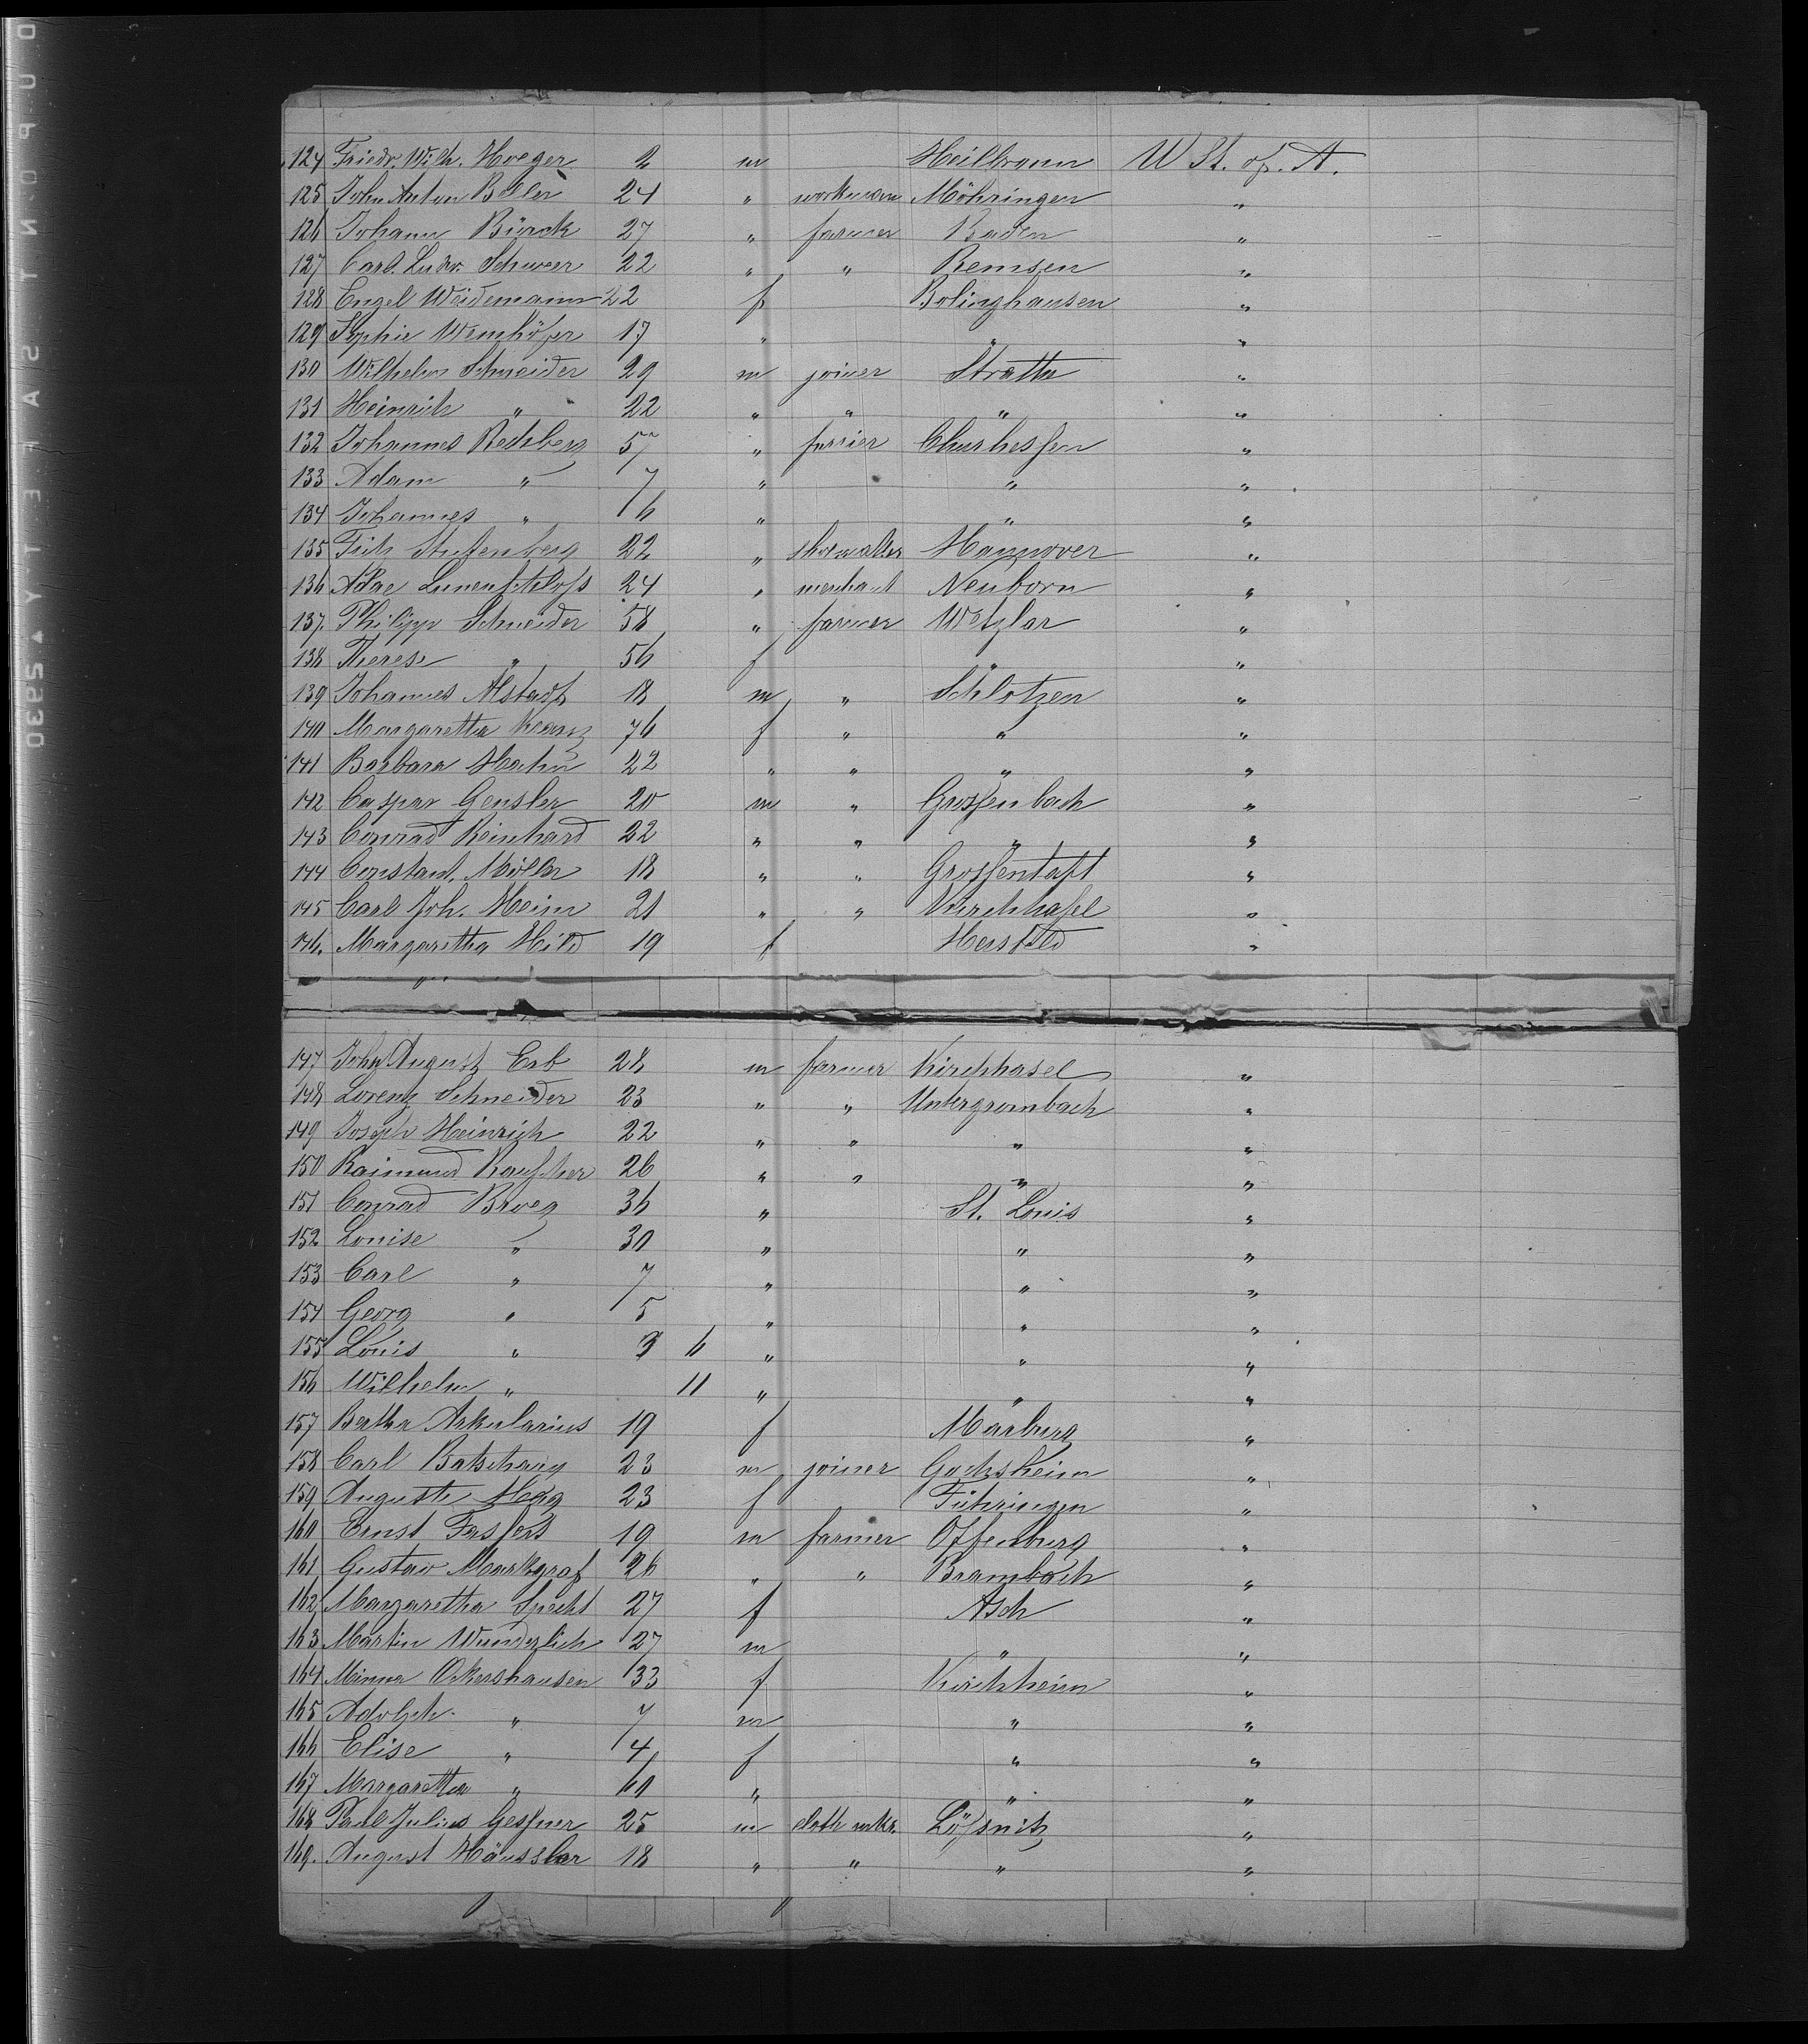 124 Friedr. Wilh. Hoeger 2 m Heilbronn U St. of. A.
125 John Anton Boller 24 " workman Möhringen "
126 Johann Bürck 27 " farmer Baden "
127 Carl Ludw. Schweer 22 " " Remsen "
128 Engel Weidemann 22 f Bolinghausen "
129 Sophie Wemhöfer 17 " " "
130 Wilhelm Schneider 29 m joiner Strotte "
131 Heinrich " 22 " " " "
132 Johannes Redsberg 57 " farrier Churhessen "
133 Adam " 7 " " "
134 Johannes " 6 " " "
135 Fritz Stufenberg 22 " shoemaker Hannover "
136 24 " merchant Neuborn "
137. Philipp Schneider 58 " farmer Wetzlar "
138 Therese " 56 f " "
139 Johannes Alstadt 18 m " Schlotzen "
140 Margaretha 76 f " " "
141 Barbara Hahn 22 " " " "
142 Caspar Gensler 20 m " Grossenbach "
143 Conrad Reinhard 22 " " " "
144 Constant. Möller 18 " " Grossentaft "
145 Carl Joh. Heim 21 " " Kirchhasel "
146. Margaretha Hild 19 f Hersfeld "
147 John August Erb 28 m farmer Kirchhasel "
148 Lorenz Schneider 23 " " Untergrombach "
149 Joseph Heinrich 22 " " " "
150 Raimund Rauscher 26 " " " "
151 Conrad Broeg 36 " St. Louis "
152 Louise " 30 " " "
153 Carl " 7 " " "
154 Georg " 5 " " "
155 Louis " 3 6 " " "
156 Wilhelm " 11 " " "
157 Bertha Arkularius 19 f Marburg "
158 Carl Batschary 23 m joiner Gochsheim "
159 Auguste Haag 23 f "
160 Ernst 19 m farmer Offenburg "
161 Gustav Markgraf 26 " " Brambach "
162 Margaretha Specht 27 f Asch "
163 Martin Wunderlich 27 m " "
164 Minna Ockershausen 33 f Kirchheim "
165 Adolph. " 7 m " "
166 Elise " 4 f " "
167 Margaretha " 60 " " "
168 Paul Julius Gessner 25 m cloth mkr. Lössnitz "
169. August Häussler 18 " " " "
DUPONT SAFETY ▲ 2930